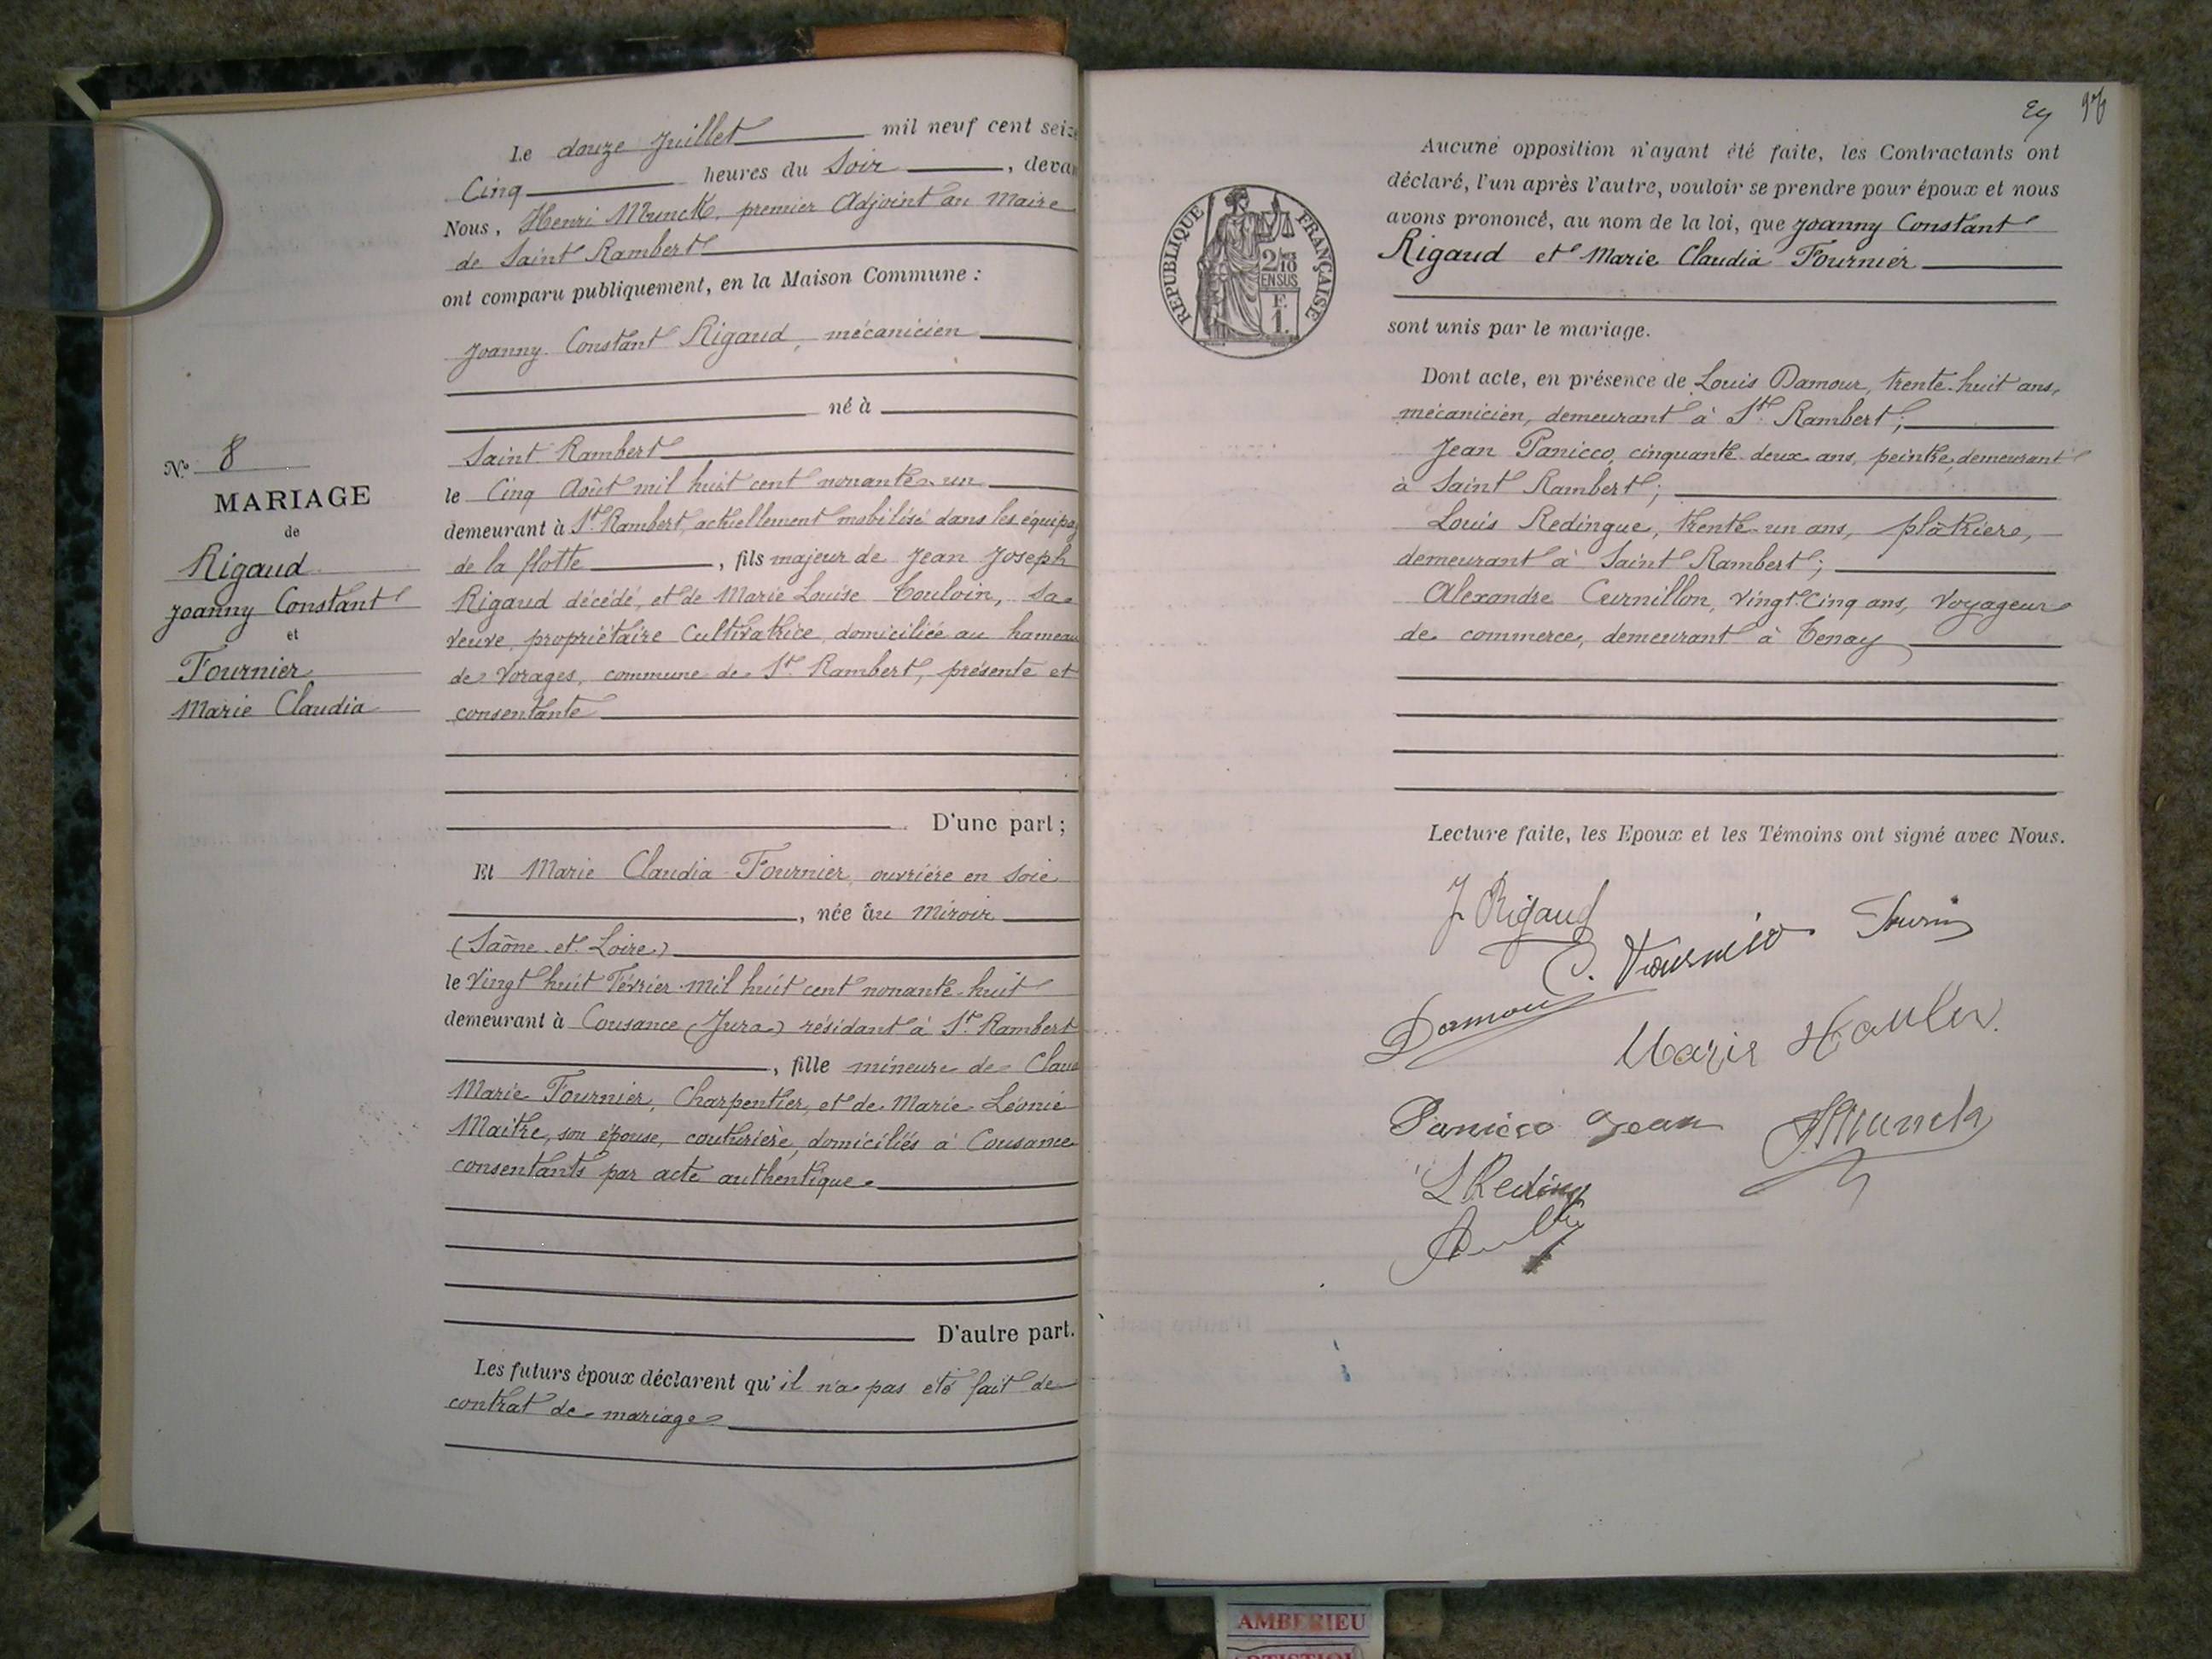 Le douze Juillet mil neuf cent seize
Cinq heures du Soir, devan
Nous, Henri Munck, premier Adjoint au Maire
de Saint Rambert
ont comparu publiquement, en la Maison Commune :
Joanny Constant Rigaud, mécanicien
né à
Saint Rambert
le Cinq Août mil huit cent nonante un
demeurant à St. Rambert, actuellement mobilisé dans les équipag
de la flotte, fils majeur de Jean Joseph
Rigaud décédé, et de Marie Louise Touloin, sa
veuve, propriétaire Cultivatrice, domiciliée au hameau
de Vorages, commune de St. Rambert, présente et
consentante
D'une part ;
Et Marie Claudia Fournier, ouvrière en soie
, née au Miroir
(Saône et Loire)
le Vingt huit Février mil huit cent nonante huit
demeurant à Cousance (Jura) résidant à St. Rambert
, fille mineure de Claud
Marie Fournier, Charpentier, et de Marie Léonie
Maitre, son épouse, couturière, domiciliés à Cousance
consentants par acte authentique
D'autre part.
Les futurs époux déclarent qu'il n'a pas été fait de
contrat de mariage
N° 8
MARIAGE
de
Rigaud
Joanny Constant
et
Fournier
Marie Claudia
REPUBLIQUE FRANÇAISE
2/10
EN SUS
F.
1.
Aucune opposition n'ayant été faite, les Contractants ont
déclaré, l'un après l'autre, vouloir se prendre pour époux et nous
avons prononcé, au nom de la loi, que Joanny Constant
Rigaud et Marie Claudia Fournier
sont unis par le mariage.
Dont acte, en présence de Louis Damour, trente-huit ans,
mécanicien, demeurant à St. Rambert ;
Jean Panicco, cinquante deux ans, peintre, demeurant
à Saint Rambert ;
Louis Redingue, trente-un ans, plâtrier,
demeurant à Saint Rambert ;
Alexandre Curnillon, Vingt Cinq ans, Voyageur
de commerce, demeurant à Tenay
Lecture faite, les Epoux et les Témoins ont signé avec Nous.
J Rigaud
C. Fournier
Damour
Marie
Panicco Jean
HMunck
L Reding
AMBERIEU